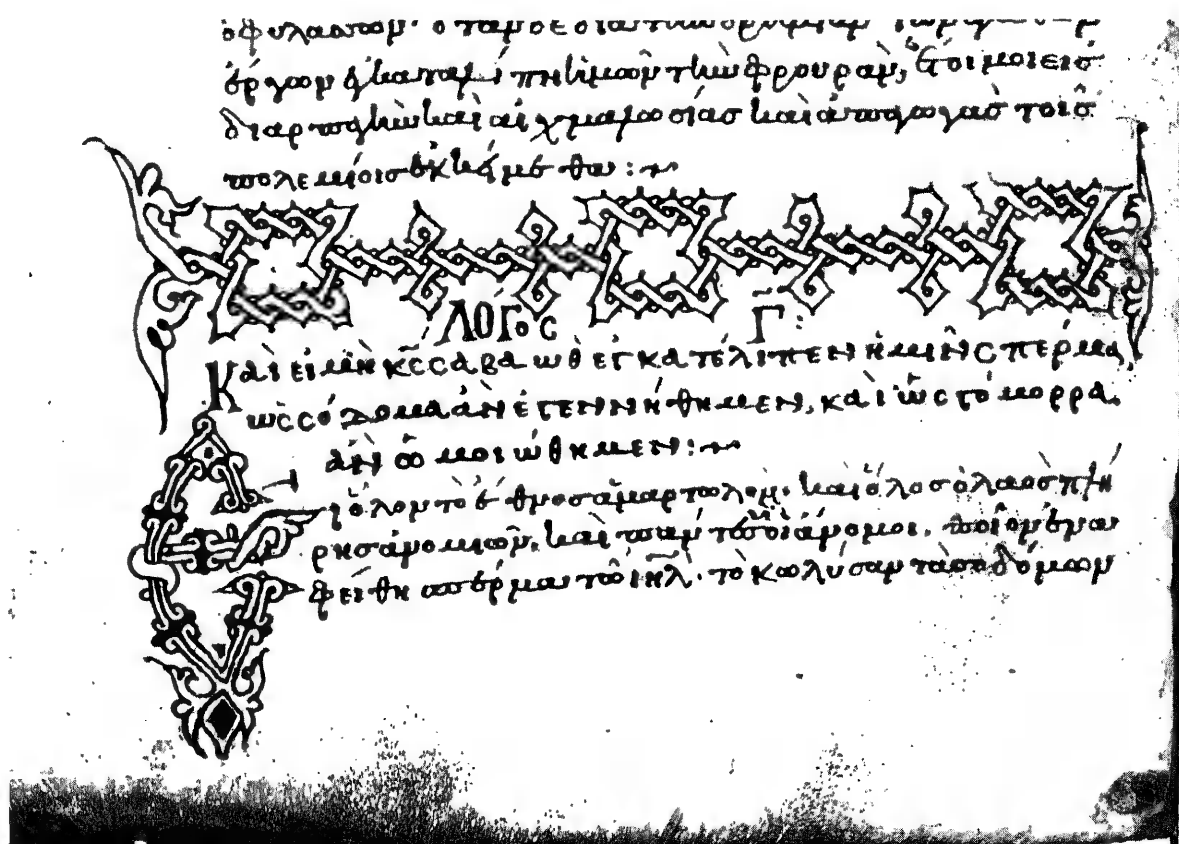 ὁ φυλάσσων· ὅταν δὲ διὰ τῶν
ἔργων καταλίπη ἡμῶν τὴν φρουρὰν, ἕτοιμοι εἰς
διαρπαγὴν καὶ αἰχμαλωσίας καὶ ἀπαγωγὰς τοῖς
πολεμίοις ἐκκείμεθα :~
ΛΟΓος Γ̅ :
Καὶ εἰ μὴ κ̅ς̅ σαβαὼθ ἐγκατέλιπεν ἡμῖν σπέρμα,
ὡς σόδομα ἂν ἐγεννήθημεν, καὶ ὡς γόμορρα.
ἂν ὁμοιώθημεν :~
Εἰ ὅλον τὸ ἔθνος ἁμαρτωλὸν. καὶ ὅλος ὁ λαὸς πλή
ρης ἀνομιῶν. καὶ πάντες οἱ ἄνομοι. ποῖον ἐγκα
φείθη σπέρμα τῶ ιη̅λ̅. τὸ κωλύσαν τὰ σοδόμων